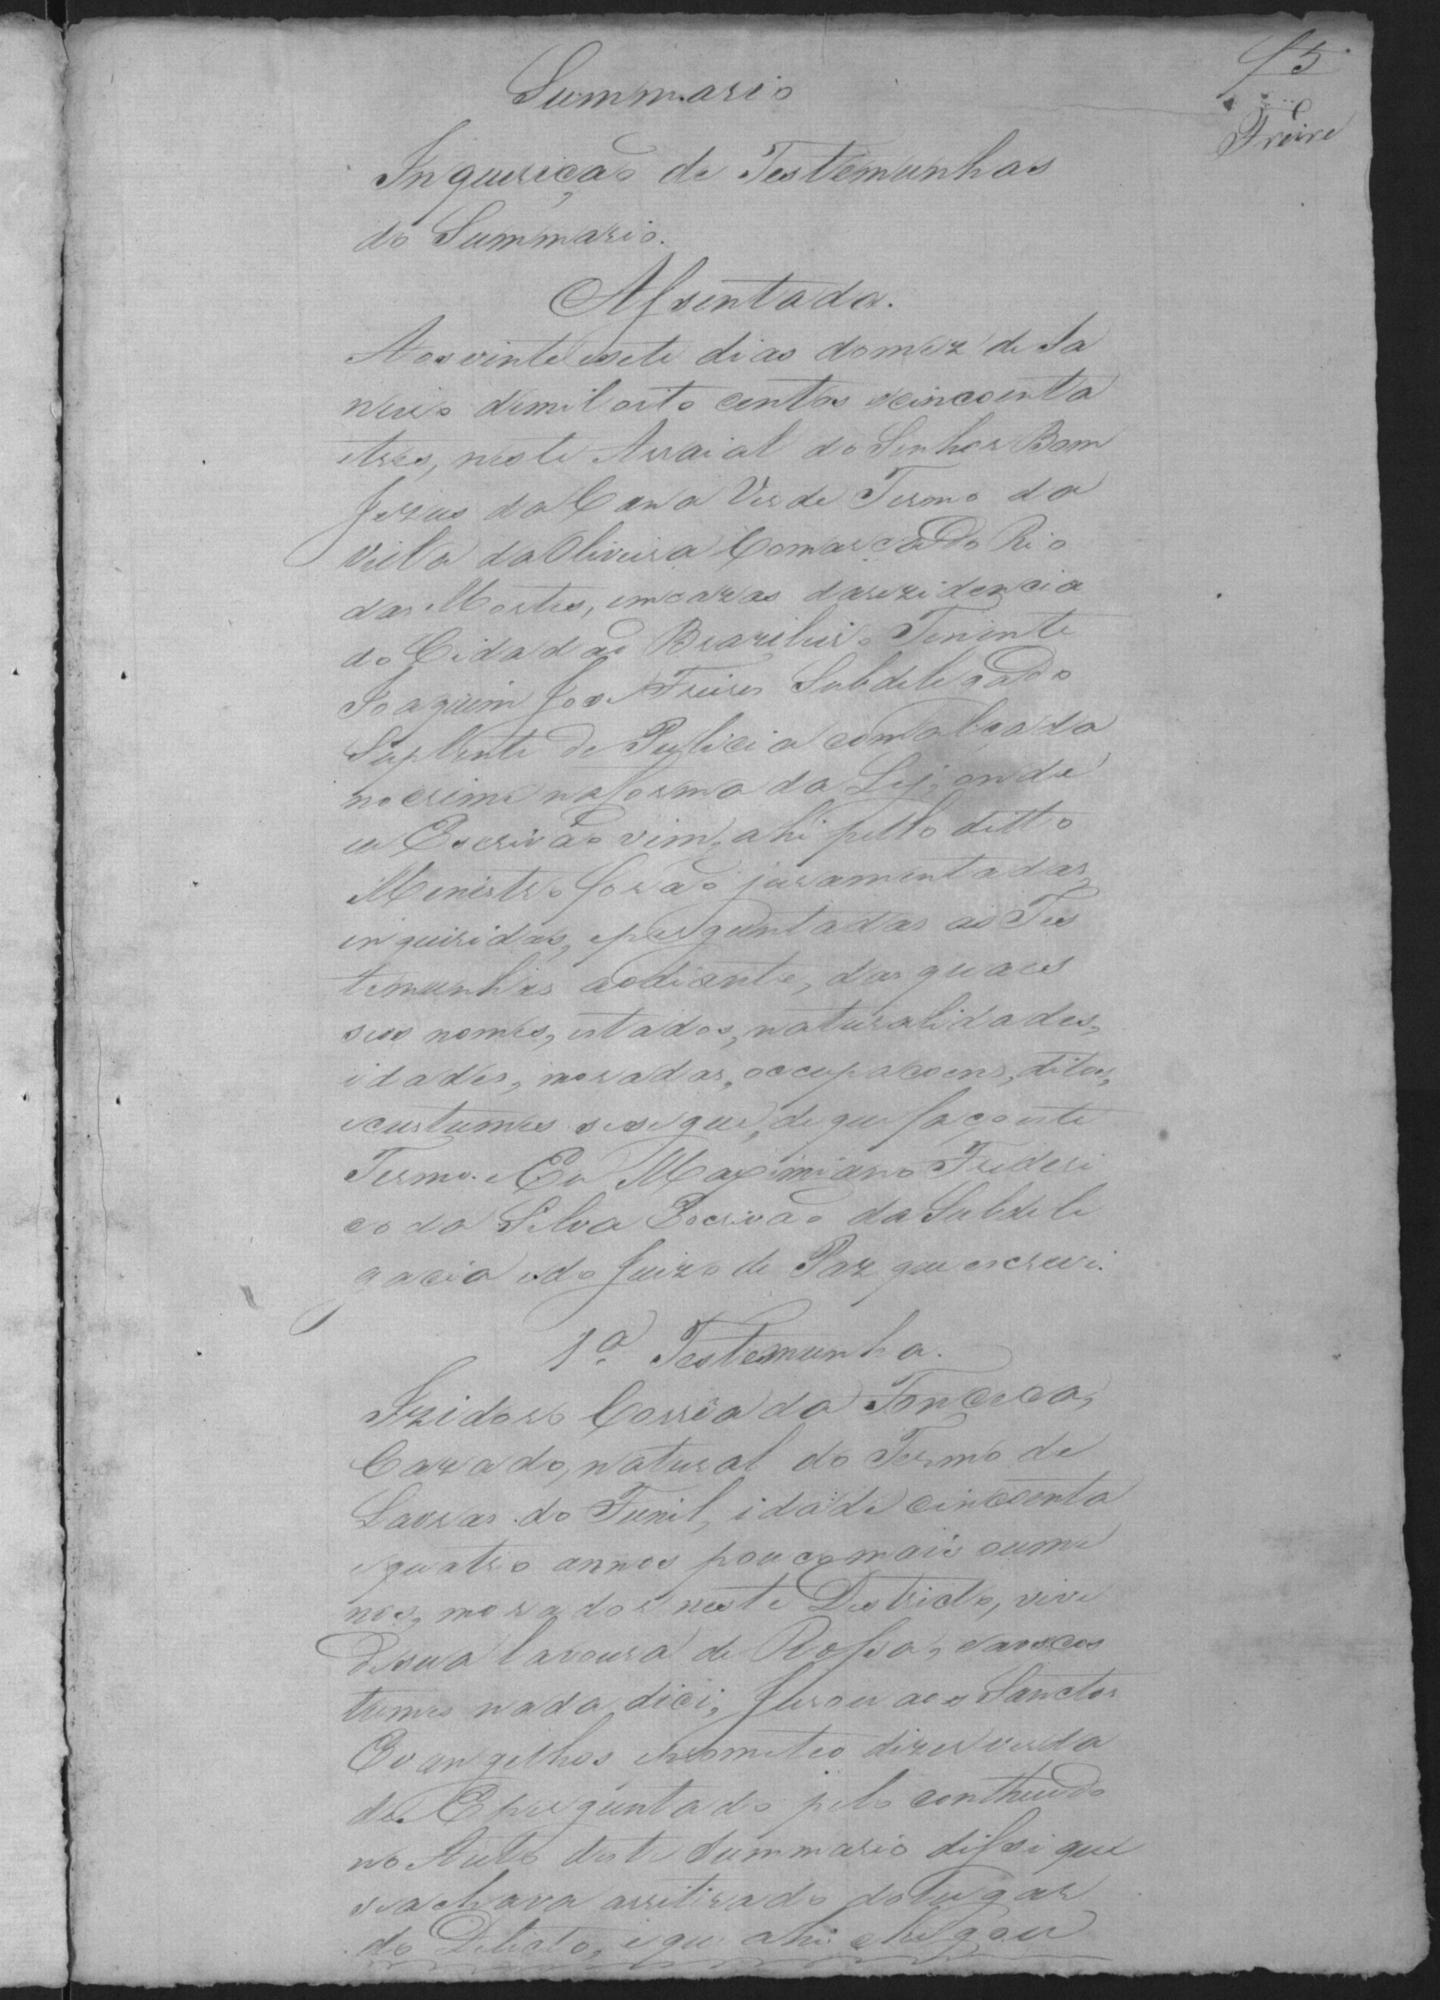 15
Freire
Summario
Inquirição de Testemunhas
do Summario.
Assentada.
Aos vinte esete dias domez de Ja
neiro demil oito centos ecincoenta
etres, neste Arraial do Senhor Bom
Jezus da Cana Verde Termo da
Villa da Oliveira Comarca do Rio
das Mortes, emcazas darezidencia
do Cidadão Brazileiro Tenente
Joaquim Jose Freire Subdelegado
Suplente de Pulicia comalçada
nocrime naforma da Lei, onde
eu Escrivão vim, ahi pello ditto
Menistro forão juramentadas,
inquiridas, eperguntadas as Tes
temunhas aodiante, das quaes
seos nomes, estados, naturalidades,
idades, moradas, occupacoens, ditos,
ecustumes sesegue, de que faço este
Termo. Eu Maximiano Frideri
co da Silva Escrivão da Subdele
gacia edo Juizo de Paz que escrevi.
1ª Testemunha.
Izidoro Corrêa da Fonceca,
Cazado, natural do Termo de
Lavras do Funil, idade cincoenta
equatro annos pouco mais oume
nos, morador neste Destricto, vive
desua lavoura de Rossa, eaos cos
tumes nada dici, Jurou aos Sanctos
Evangelhos eprometeo dizer verda
de. Eperguntado pelo contheudo
no Auto deste Summario disse que
seachava arretirado dolugar
do Delicto, eque ahi chegou